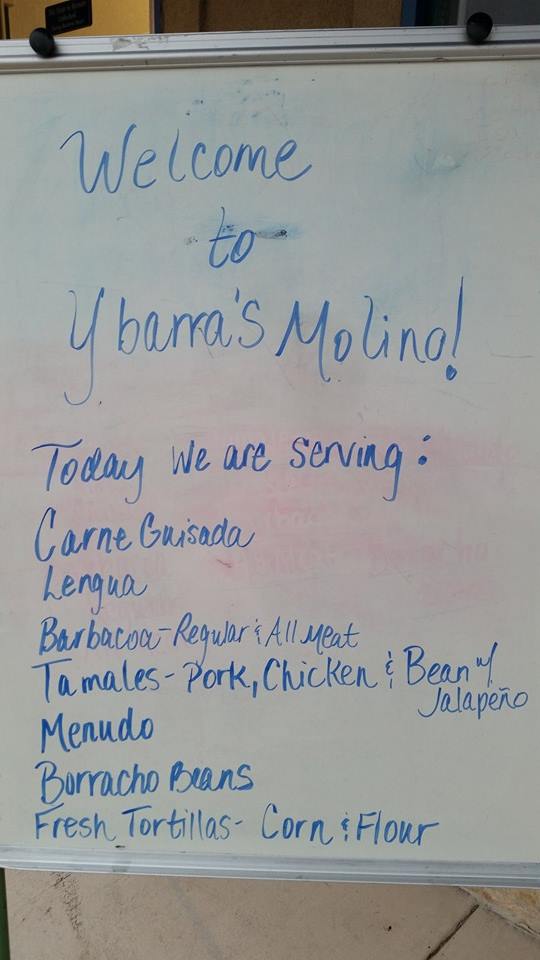 Welcome
to
Ybarra's Molino!
Today we are serving:
Carne Guisada
Lengua
Barbacoa - Regular & All Meat
Tamales - Pork, Chicken & Bean w/
Jalapeño
Menudo
Borracho Beans
Fresh Tortillas - Corn & Flour